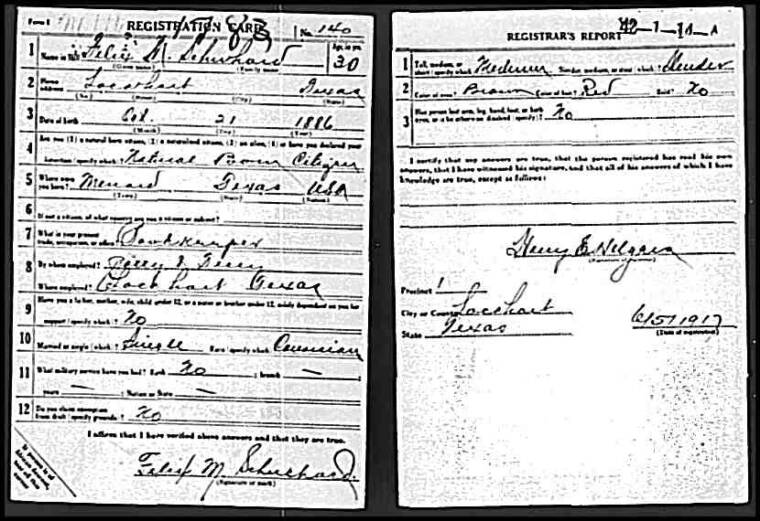 Form 1 REGISTRATION CARD No. 140
1 Name in full Felix M. Schuchard Age, in yrs. 30
(Given name) (Family name)
2 Home address Lockhart Texas
(No.) (Street) (City) (State)
3 Date of birth Oct. 21 1886
(Month) (Day) (Year)
4 Are you (1) a natural born citizen, (2) a naturalized citizen, (3) an alien, (4) or have you declared your
intention (specify which)? Natural Born Citizen
5 Where were you born? Menard Texas USA
(Town) (State) (Nation)
6 If not a citizen, of what country are you a citizen or subject?
7 What is your present trade, occupation, or office? Bookkeeper
8 By whom employed?
Where employed? Lockhart Texas
9 Have you a father, mother, wife, child under 12, or a sister or brother under 12, solely dependent on you for
support (specify which)? No
10 Married or single (which)? Single Race (specify which)? Caucasian
11 What military service have you had? Rank No ; branch —
years — ; Nation or State —
12 Do you claim exemption from draft (specify grounds)? No
I affirm that I have verified above answers and that they are true.
Felix M. Schuchard.
(Signature or mark)
REGISTRAR'S REPORT 42-1-14-A
1 Tall, medium, or short (specify which)? Medium Slender, medium, or stout (which)? Slender
2 Color of eyes? Brown Color of hair? Red Bald? No
3 Has person lost arm, leg, hand, foot, or both eyes, or is he otherwise disabled (specify)? No
I certify that my answers are true, that the person registered has read his own
answers, that I have witnessed his signature, and that all of his answers of which I have
knowledge are true, except as follows:
Henry E.
Precinct 1
City or County Lockhart
State Texas 6/5/1917
(Date of registration)